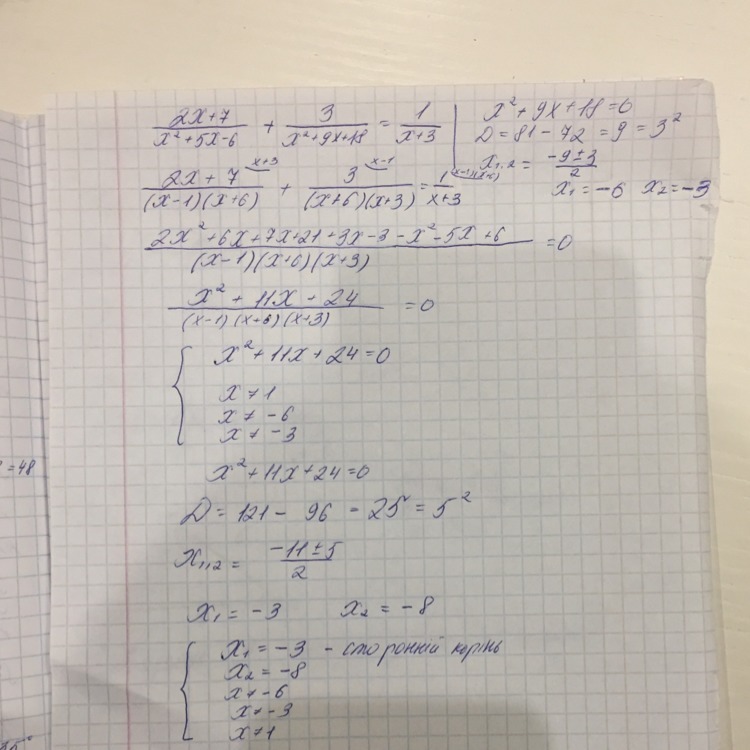 (2x+7)/(x²+5x-6) + 3/(x²+9x+18) = 1/(x+3)
x²+9x+18=0
D=81-72=9=3²
x₁,₂ = (-9±3)/2
x₁=-6 x₂=-3
(2x+7)/((x-1)(x+6)) ⌣x+3 + 3/((x+6)(x+3)) ⌣x-1 = 1/(x+3) ⌣(x-1)(x+6)
(2x²+6x+7x+21+3x-3-x²-5x+6)/((x-1)(x+6)(x+3)) =0
(x²+11x+24)/((x-1)(x+6)(x+3)) =0
{ x²+11x+24=0
x≠1
x≠-6
x≠-3
x²+11x+24=0
D=121-96=25=5²
x₁,₂ = (-11±5)/2
x₁=-3 x₂=-8
{ x₁=-3 - сторонній корінь
x₂=-8
x≠-6
x≠-3
x≠1
=48